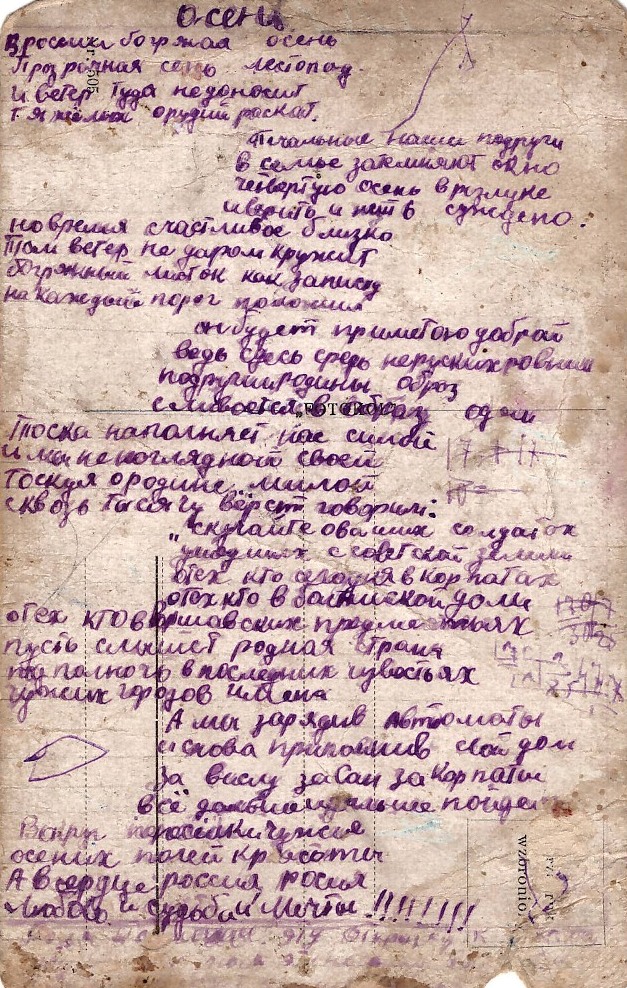 Осень
В россии богряная осень
Прозрачная сень лестопад
и ветер туда не доносит
тяжолых орудий раскат.
Печальные наши подруги
в семье затемняют окно
четвертую осень в разлуке
и верить и петь суждено.
но время счастливое близко
Там ветер не даром кружит
богрянный листок как записку
на каждый порог положил
он будет приметою доброй
ведь здесь средь неруских ровнин
подруги и родины оброз
сливается в оброз один
FOTOKOR
Тоска наполняет нас силой
и мы ненаглядной своей
тоскуя о родине милой
сквозь тысячу вёрст говорим:
„скучайте о ваших солдатах
ушедших с советской земли
о тех кто сегодня в корпатах
о тех кто в балтийской дали
о тех кто в варшавских предместьях
пусть слышит родная страна
под полночь в последних извостьях
чужих городов имена
А мы зарядив автоматы
и снова припомнив свой дом
за вислу за Сан за Корпаты
всё дальше и дальше пойдем
Вокруг чужие
осених полей красоты
А в сердце россия росия
Любовь и судьба и Мечты !!!!!!!!
wzbronio